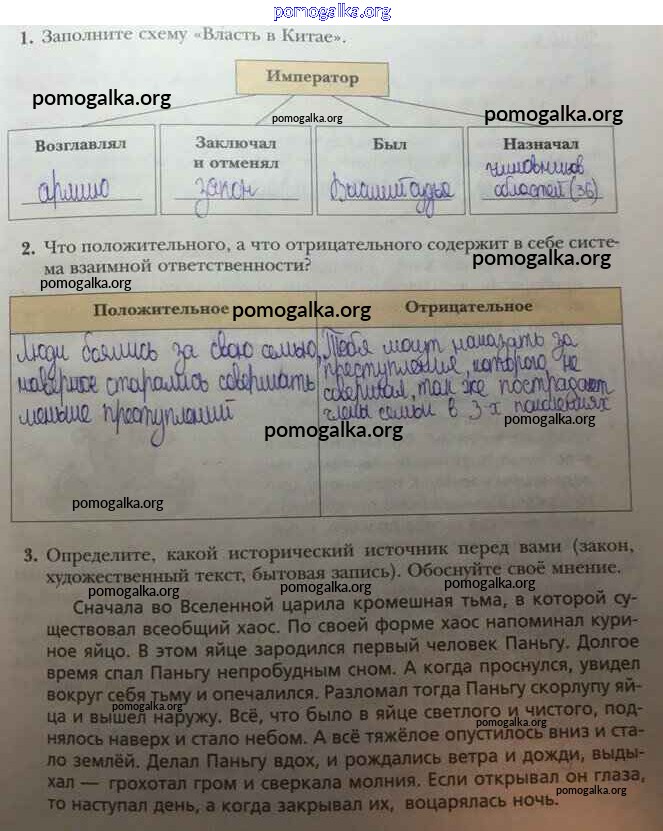 pomogalka.org
1. Заполните схему «Власть в Китае».
Император
pomogalka.org
pomogalka.org
pomogalka.org
Возглавлял
Заключал
и отменял
Был
Назначал
армию
закон
Высший судья
чиновников
областей (36)
2. Что положительного, а что отрицательного содержит в себе систе-
ма взаимной ответственности?
pomogalka.org
pomogalka.org
Положительное
pomogalka.org
Отрицательное
Люди боялись за свою семью,
наверное старались совершать
меньше преступлений
Тебя могут наказать за
преступления, которого не
совершал, так же пострадают
члены семьи в 3-х поколениях
pomogalka.org
pomogalka.org
pomogalka.org
3. Определите, какой исторический источник перед вами (закон,
художественный текст, бытовая запись). Обоснуйте своё мнение.
pomogalka.org
pomogalka.org
Сначала во Вселенной царила кромешная тьма, в которой су-
ществовал всеобщий хаос. По своей форме хаос напоминал кури-
ное яйцо. В этом яйце зародился первый человек Паньгу. Долгое
время спал Паньгу непробудным сном. А когда проснулся, увидел
вокруг себя тьму и опечалился. Разломал тогда Паньгу скорлупу яй-
ца и вышел наружу. Всё, что было в яйце светлого и чистого, под-
нялось наверх и стало небом. А всё тяжёлое опустилось вниз и ста-
ло землёй. Делал Паньгу вдох, и рождались ветра и дожди, выды-
хал — грохотал гром и сверкала молния. Если открывал он глаза,
то наступал день, а когда закрывал их, воцарялась ночь.
pomogalka.org
pomogalka.org
pomogalka.org
pomogalka.org